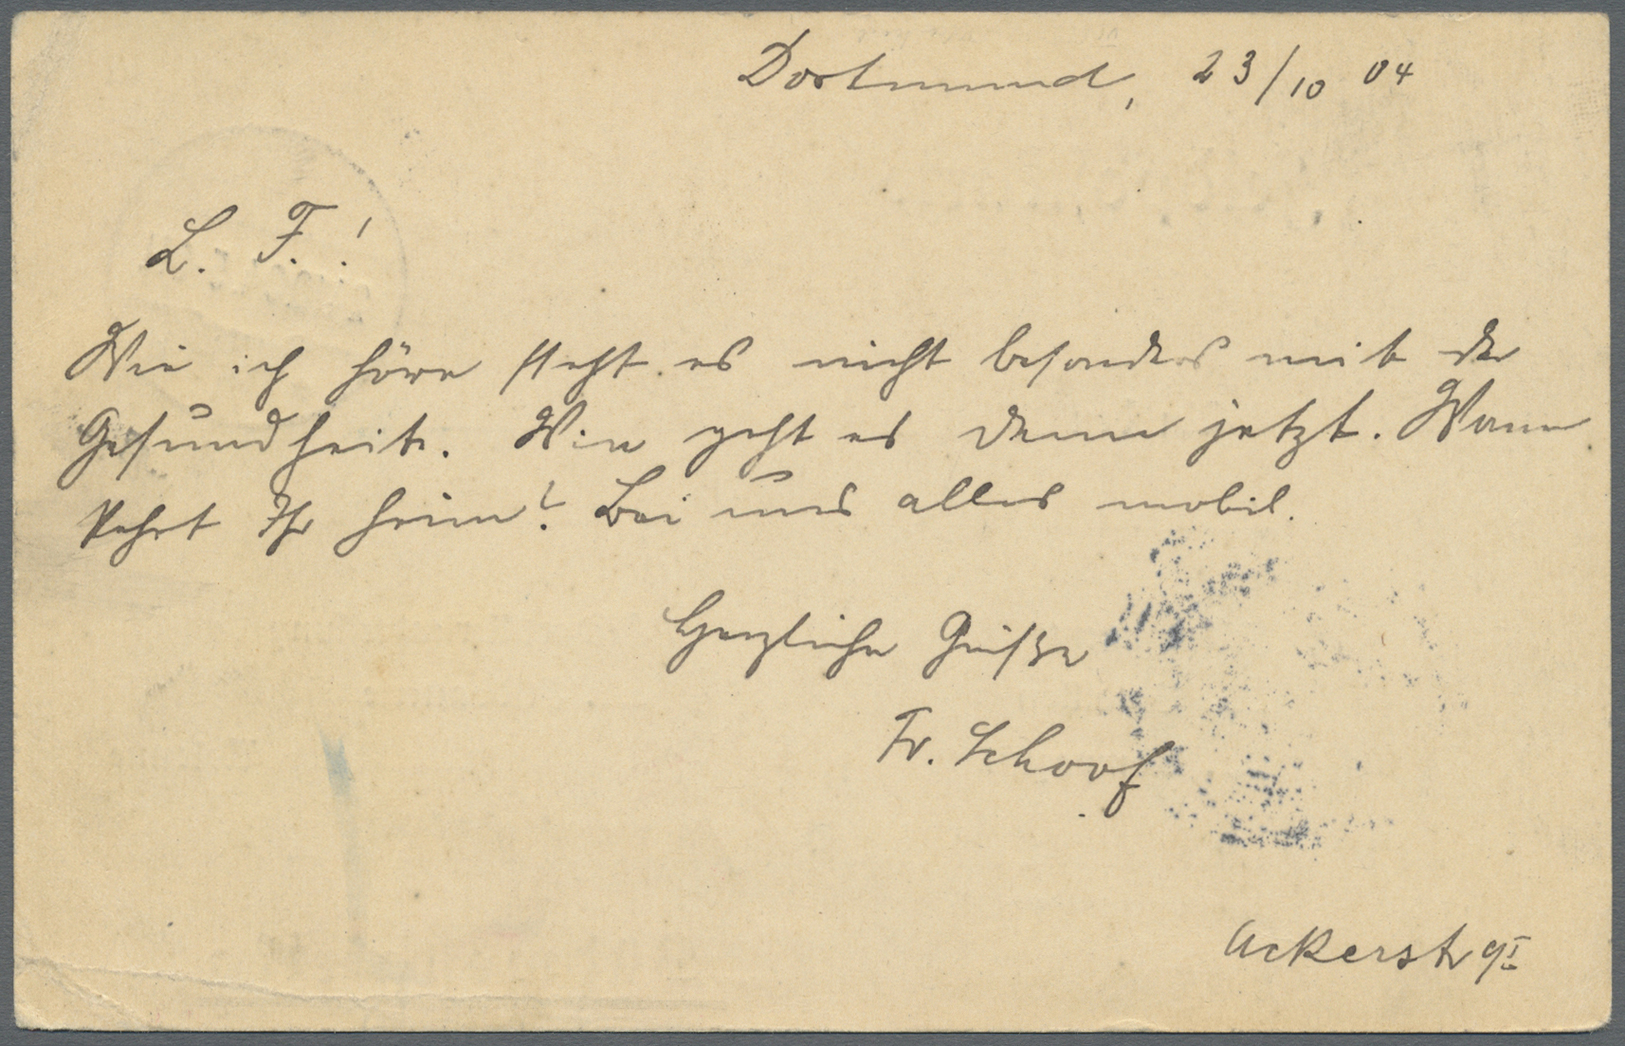 Dortmund, 23/10 04
L. F.!
Wie ich höre steht es nicht besonders mit der
Gesundheit. Wie geht es denn jetzt. Wann
kehrt Ihr heim? Bei uns alles mobil.
Herzliche Grüße
Fr. Schoof
Ackerstr 9I